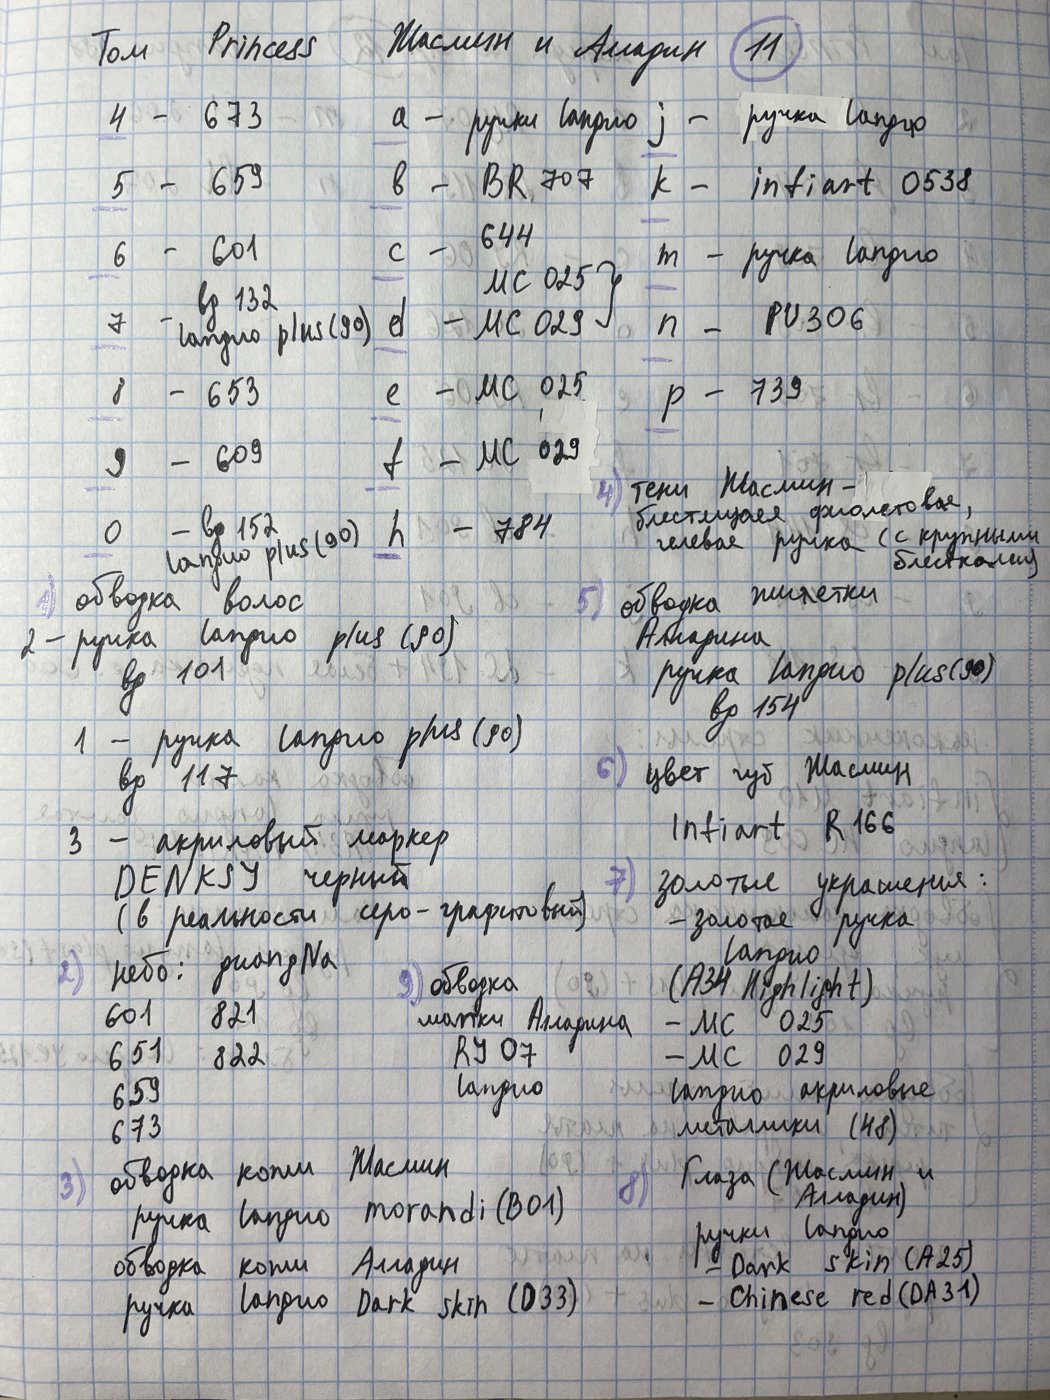 Том Princess Жасмин и Алладин 11
4 - 673
5 - 659
6 - 601
7 - bp 132
languo plus (90)
8 - 653
9 - 609
0 - bp 152
languo plus (90)
a - ручки languo
b - BR 707
c - 644
MC 025
d - MC 029
e - MC 025
f - MC 029
h - 784
j - ручка languo
k - infiart 0538
m - ручка languo
n - PV306
p - 739
1) обводка волос
2 - ручка languo plus (90)
bp 101
1 - ручка languo plus (90)
bp 117
3 - акриловый маркер
DENKSY черный
(в реальности серо-графитовый)
2) небо: guangNa
601 821
651 822
659
673
3) обводка кожи Жасмин
ручка languo morandi (B01)
обводка кожи Алладин
ручка languo Dark skin (D33)
4) тени Жасмин -
блестящая фиолетовая,
гелевая ручка (с крупными
блестками)
5) обводка жилетки
Алладина
ручка languo plus (90)
bp 154
6) цвет губ Жасмин
Infiart R166
7) золотые украшения:
- золотая ручка
languo
(A34 Highlight)
- MC 025
- MC 029
languo акриловые
металлики (48)
8) Глаза (Жасмин и
Алладин)
ручки languo
- Dark skin (A25)
- Chinese red (DA31)
9) обводка
шапки Алладина
RY07
languo